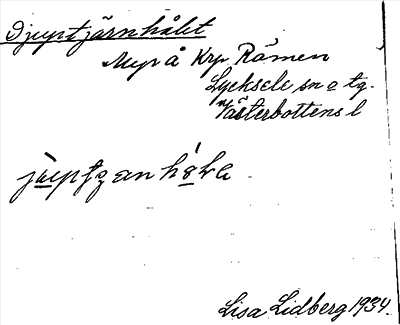 Djuptjärnhålet
Myrå Krp Råmen
Lycksele sn o tg.
Västerbottens l
Lisa Lidberg 1934.